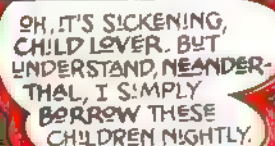 OH, IT'S SICKENING,
CHILD LOVER. BUT
UNDERSTAND, NEANDER-
THAL, I SIMPLY
BORROW THESE
CHILDREN NIGHTLY.